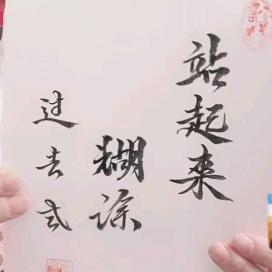 站起来
糊涂
过去式